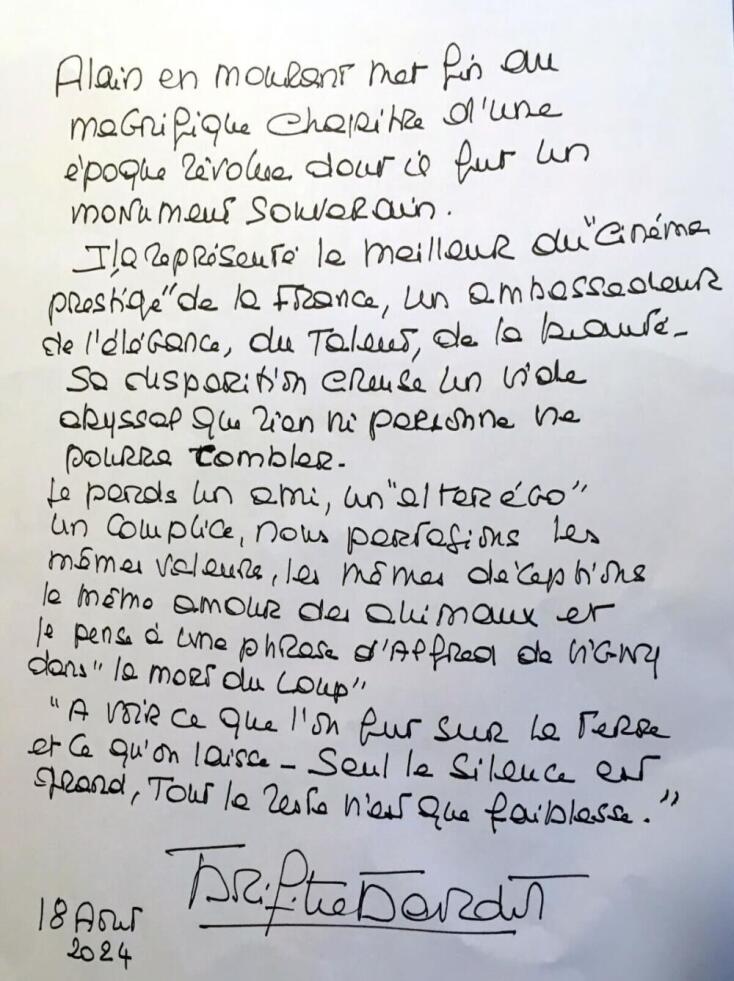 Alain en mourant met fin au
magnifique chapitre d'une
époque révolue dont il fut un
monument souverain.
Il a représenté le meilleur du "cinéma
prestige" de la France, un ambassadeur
de l'élégance, du talent, de la beauté -
Sa disparition creuse un vide
abyssal que rien ni personne ne
pourra combler.
Je perds un ami, un "alter égo"
un complice, nous partagions les
mêmes valeurs, les mêmes déceptions
le même amour des animaux et
je pense à une phrase d'Alfred de VIGNY
dans "la mort du loup"
"A voir ce que l'on fut sur la terre
et ce qu'on laisse - Seul le silence est
grand, tout le reste n'est que faiblesse."
Brigitte Bardot
18 Aout
2024